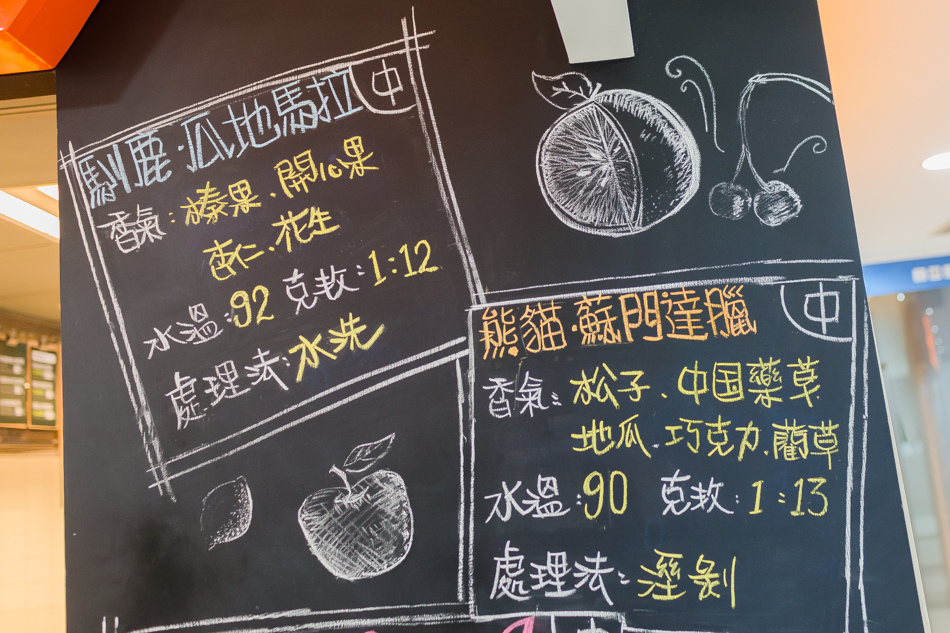 馴鹿·瓜地馬拉 中
香氣:榛果.開心果
杏仁.花生
水溫:92 克数:1:12
處理法:水洗
熊貓·蘇門達臘 中
香氣:松子.中国藥草
地瓜.巧克力.藺草
水溫:90 克数:1:13
處理法:溼剝